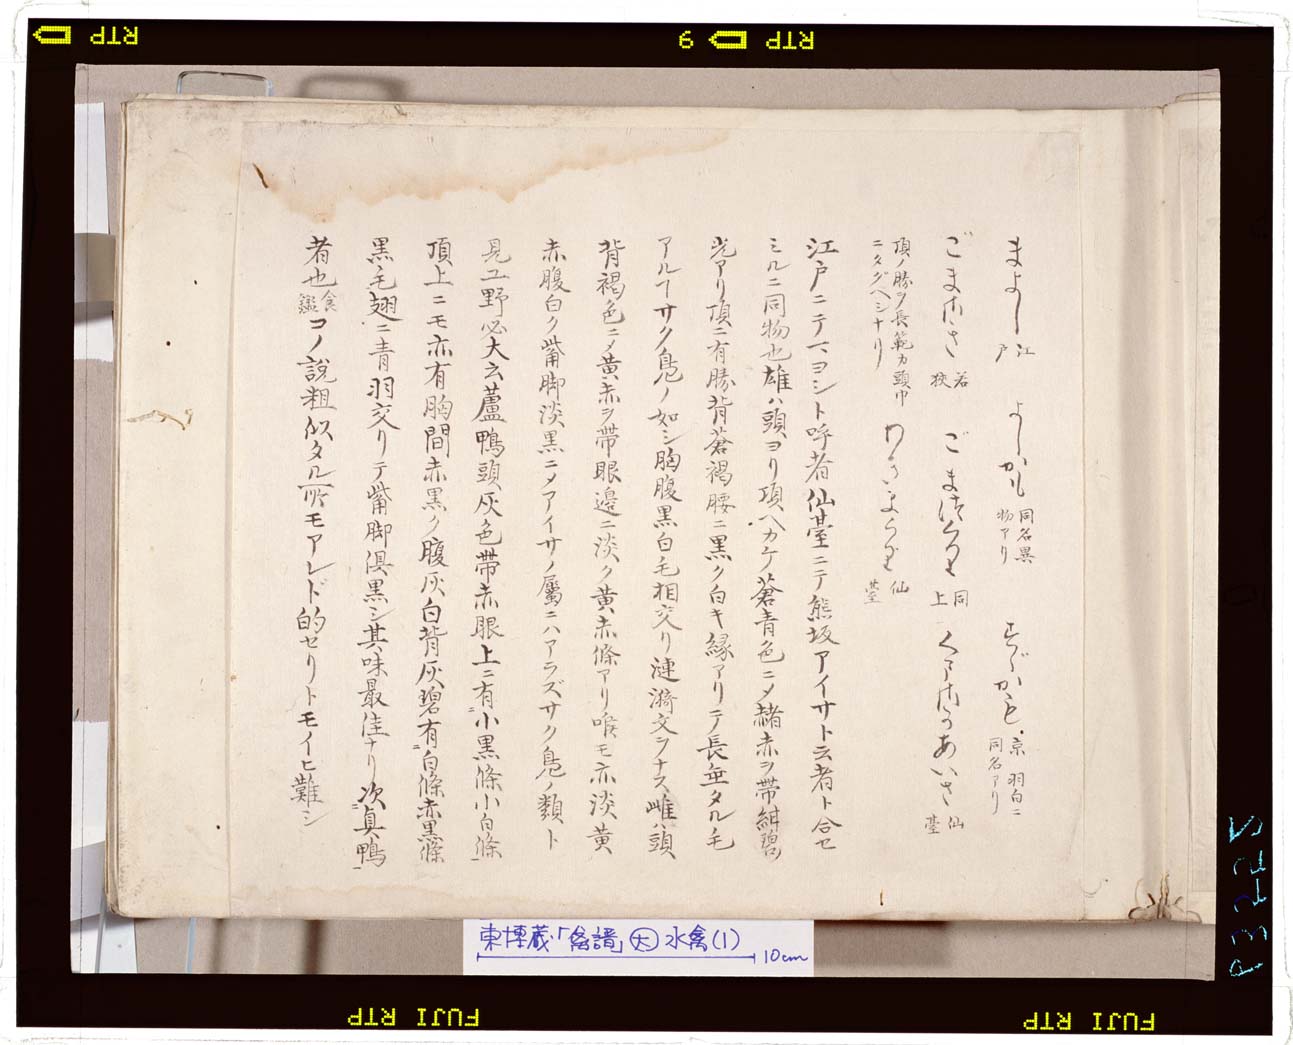 まよし 江戸 よしかも 同名異物アリ 京 羽白ニ同名アリ
ごまほさ 若狭 同上 あいさ 仙臺
頂ノ勝ヲ長範カ頭巾ニタグヘシナリ 仙臺
江戸ニテマヨシト呼者仙臺ニテ熊坂アイサト云者ト合セ
ミルニ同物也雄ハ頭ヨリ頂ヘカケ蒼青色ニメ赭赤ヲ帯紺碧
光アリ頂ニ有勝背蒼褐腰ニ黒ク白キ縁アリテ長垂タル毛
アルヿサク鳧ノ如シ胸腹黒白毛相交リ漣漪文ヲナス雌ハ頭
背褐色ニメ黄赤ヲ帯眼邉ニ淡ク黄赤條アリ喉モ亦淡黄
赤腹白ク觜脚淡黒ニメアイサノ屬ニハアラズサク鳧ノ類ト
見ユ野必大云蘆鴨頭灰色帯赤眼上ニ有小黒條小白條
頂上ニモ亦有胸間赤黒ク腹灰白背灰碧有白條赤黒條
黒毛翅ニ青羽交リテ觜脚倶黒シ其味最佳ナリ次真鴨
者也 食鑑 コノ説粗似タル所モアレド的セリトモイヒ難シ
東博蔵・「禽譜」大 水禽(1)
10cm
RTP
9 RTP
FUJI RTP
FUJI RTP